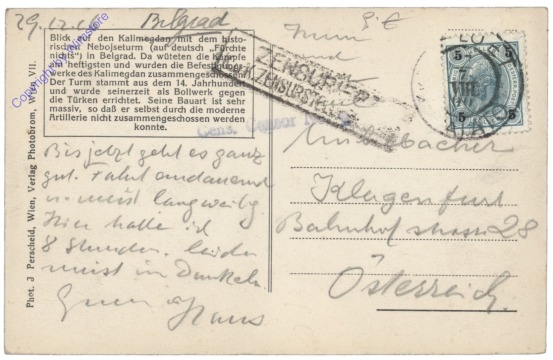 29.12.
Belgrad
Blick auf den Kalimegdan mit dem histo-
rischen Nebojseturm (auf deutsch „Fürchte
nichts") in Belgrad. Da wüteten die Kämpfe
am heftigsten und wurden die Befestigungs-
werke des Kalimegdan zusammengeschossen.
Der Turm stammt aus dem 14. Jahrhundert
und wurde seinerzeit als Bollwerk gegen
die Türken errichtet. Seine Bauart ist sehr
massiv, so daß er selbst durch die moderne
Artillerie nicht zusammengeschossen werden
konnte.
Bis jetzt geht es ganz
gut. Fahrt andauernd
u. meist langweilig
Hier halte ich
8 Stunden. leider
meist im Dunkeln
Hans
Phot. J Perscheid, Wien, Verlag Photobrom, Wien VII.
ZENSURIERT
ZENSURSTELLE
Cens. Censor
5
5
5
5
Klagenfurt
Bahnhofstrasse 28
Österreich.
Copyright by